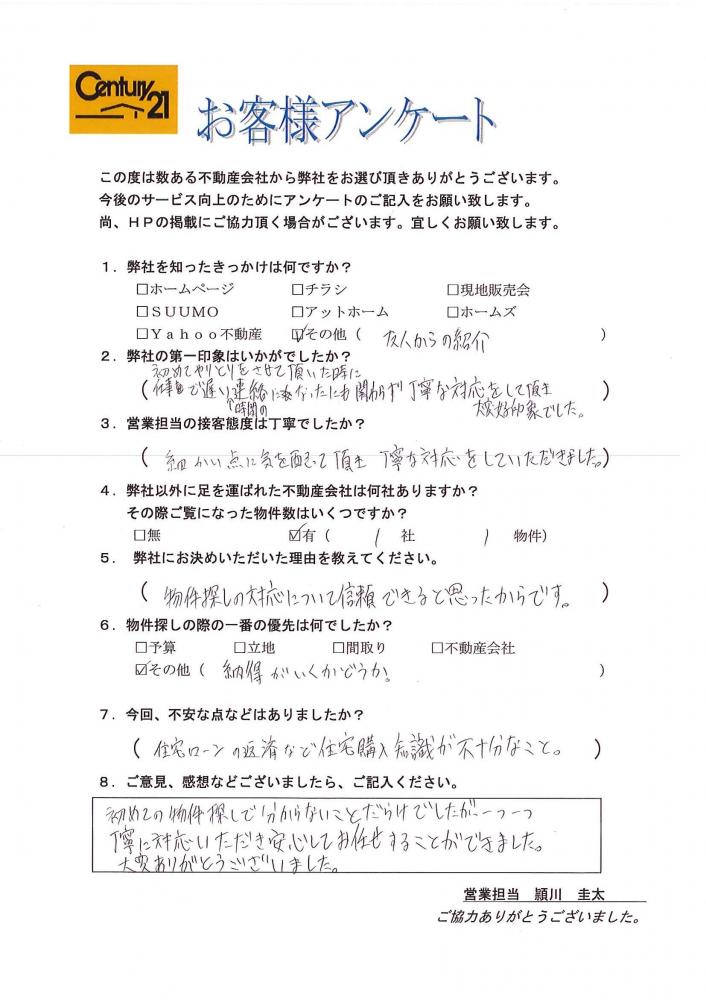 Century 21
お客様アンケート
この度は数ある不動産会社から弊社をお選び頂きありがとうございます。
今後のサービス向上のためにアンケートのご記入をお願い致します。
尚、HPの掲載にご協力頂く場合がございます。宜しくお願い致します。
1．弊社を知ったきっかけは何ですか？
□ホームページ □チラシ □現地販売会
□SUUMO □アットホーム □ホームズ
□Yahoo不動産 ☑その他（ 友人からの紹介 ）
2．弊社の第一印象はいかがでしたか？
初めてやりとりをさせて頂いた時に
（ 仕事で遅い時間の連絡になったにも関わらず丁寧な対応をして頂き
大変好印象でした。
3．営業担当の接客態度は丁寧でしたか？
（ 細かい点に気を配って頂き丁寧な対応をしていただきました。）
4．弊社以外に足を運ばれた不動産会社は何社ありますか？
その際ご覧になった物件数はいくつですか？
□無 ☑有（ 1 社 1 物件）
5． 弊社にお決めいただいた理由を教えてください。
（ 物件探しの対応について信頼できると思ったからです。 ）
6．物件探しの際の一番の優先は何でしたか？
□予算 □立地 □間取り □不動産会社
☑その他（ 納得がいくかどうか。 ）
7．今回、不安な点などはありましたか？
（ 住宅ローンの返済など住宅購入知識が不十分なこと。 ）
8．ご意見、感想などございましたら、ご記入ください。
初めての物件探しで分からないことだらけでしたが一つ一つ
丁寧に対応いただき安心してお任せすることができました。
大変ありがとうございました。
営業担当 頴川 圭太
ご協力ありがとうございました。